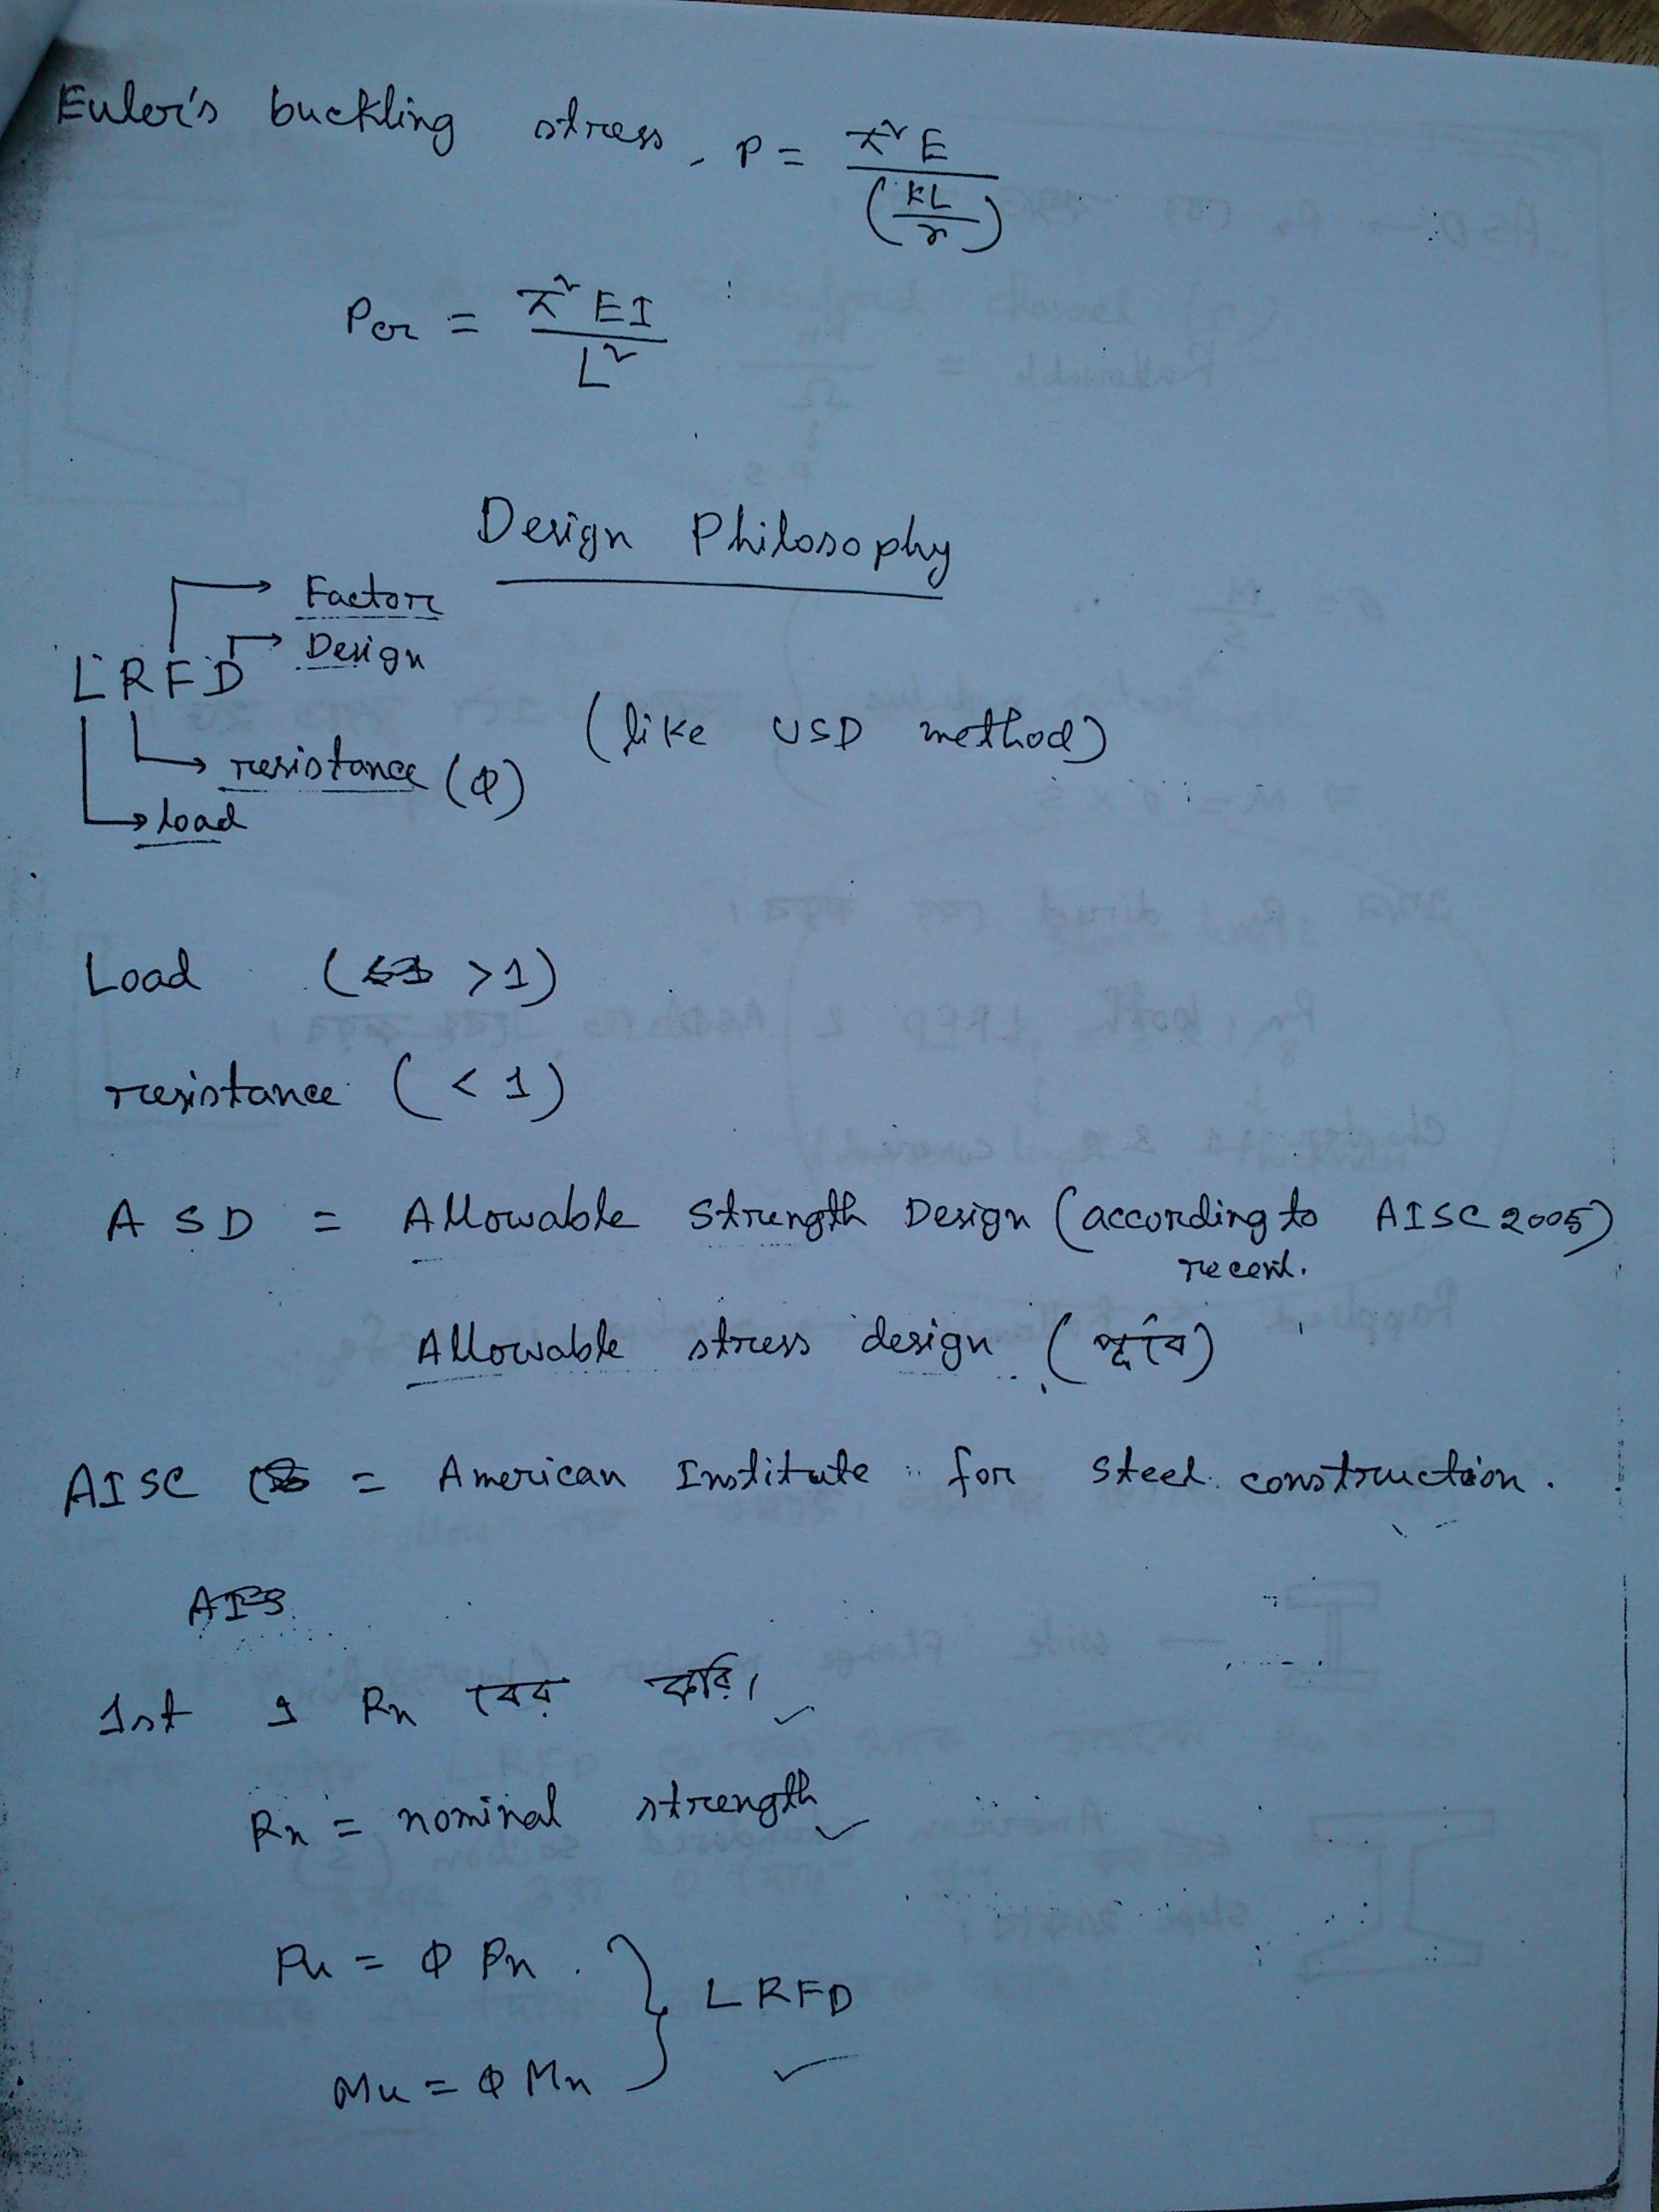 Euler's buckling stress, P = π²E / (KL/r)
Pcr = π²EI / L²
Design Philosophy
Factor
Design
LRFD
(like USD method)
resistance (φ)
load
Load (<1 >1)
resistance (<1)
ASD = Allowable Strength Design (according to AISC 2005)
recent.
Allowable stress design (পূর্বে)
AISC = American Institute for steel construction.
AIS
1st এ Rn বের করি।
Rn = nominal strength
Pu = φ Pn
LRFD
Mu = φ Mn